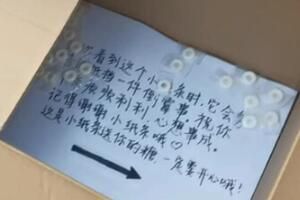 看到这个小纸条时,它会
抵挡一件倒霉事。祝你
顺顺利利,心想事成。
记得谢谢小纸条哦♡
这是小纸条送你的糖,一定要开心哦!